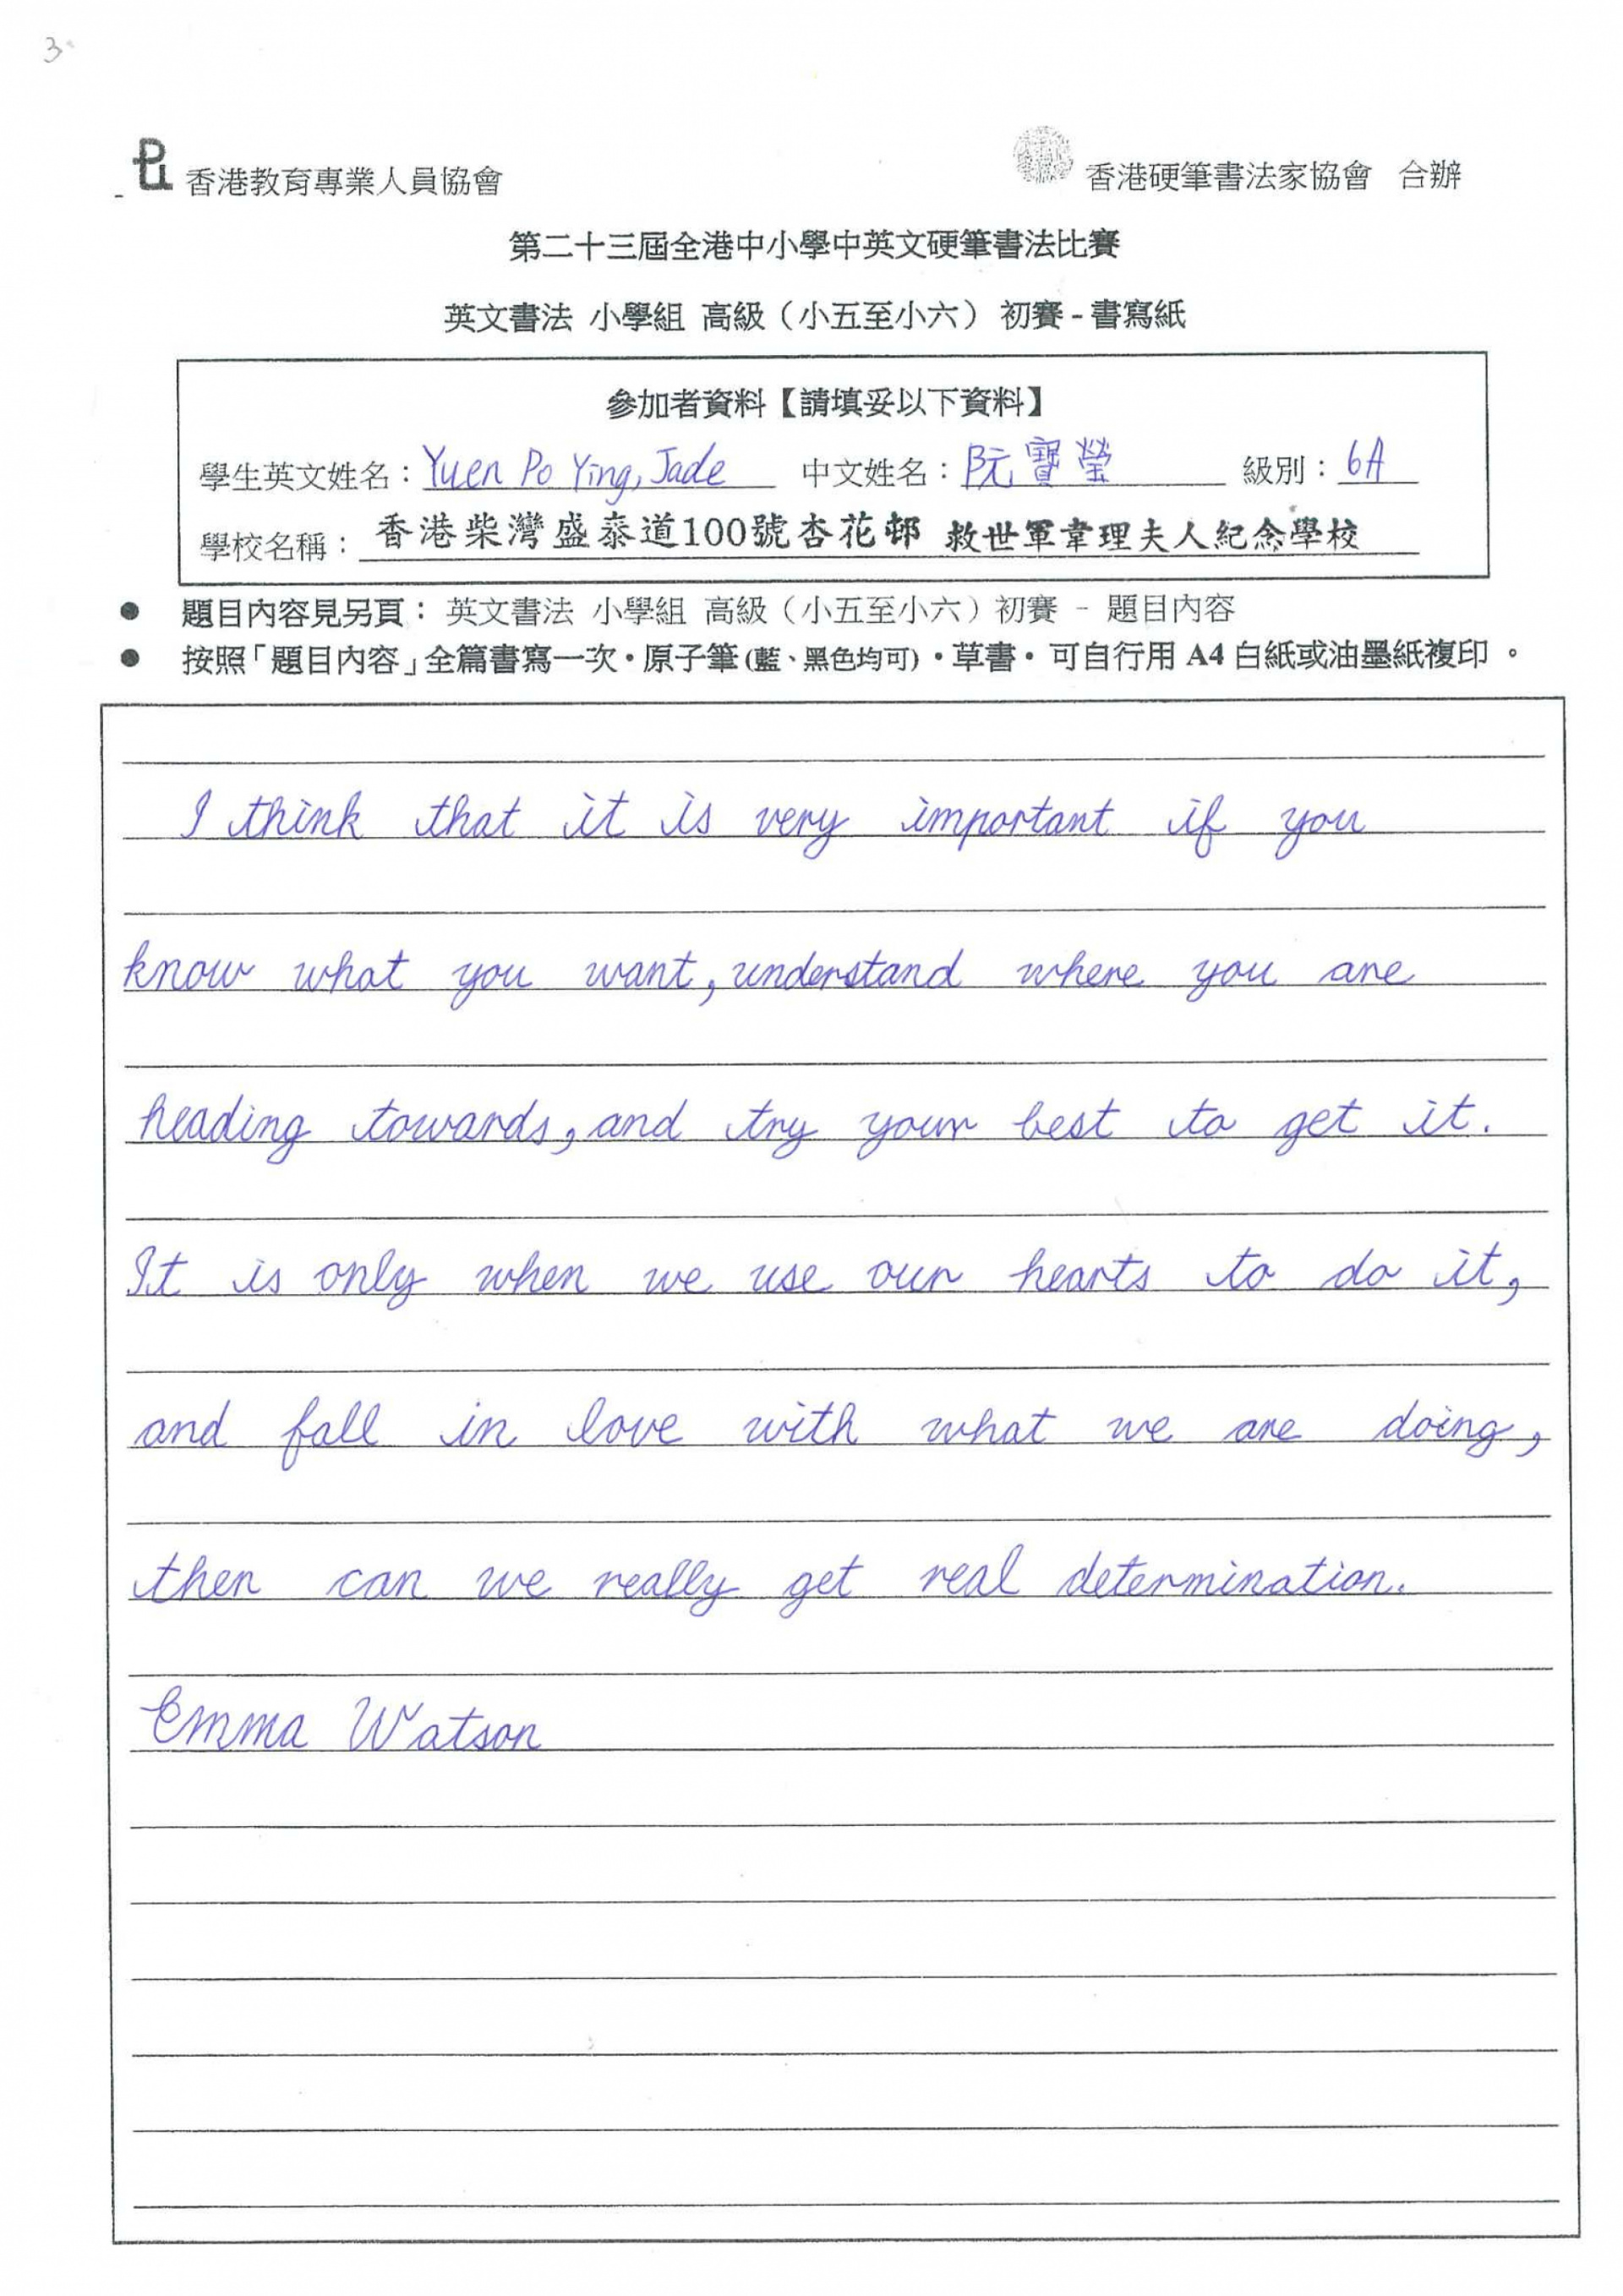 3.
香港教育專業人員協會
香港硬筆書法家協會 合辦
第二十三屆全港中小學中英文硬筆書法比賽
英文書法 小學組 高級（小五至小六） 初賽 - 書寫紙
參加者資料【請填妥以下資料】
學生英文姓名：Yuen Po Ying, Jade 中文姓名：阮寶瑩 級別：6A
學校名稱：香港柴灣盛泰道100號杏花邨 救世軍韋理夫人紀念學校
● 題目內容見另頁： 英文書法 小學組 高級（小五至小六）初賽 - 題目內容
● 按照「題目內容」全篇書寫一次・原子筆(藍、黑色均可)・草書・可自行用 A4 白紙或油墨紙複印。
I think that it is very important if you
know what you want, understand where you are
heading towards, and try your best to get it.
It is only when we use our hearts to do it,
and fall in love with what we are doing,
then can we really get real determination.
Emma Watson